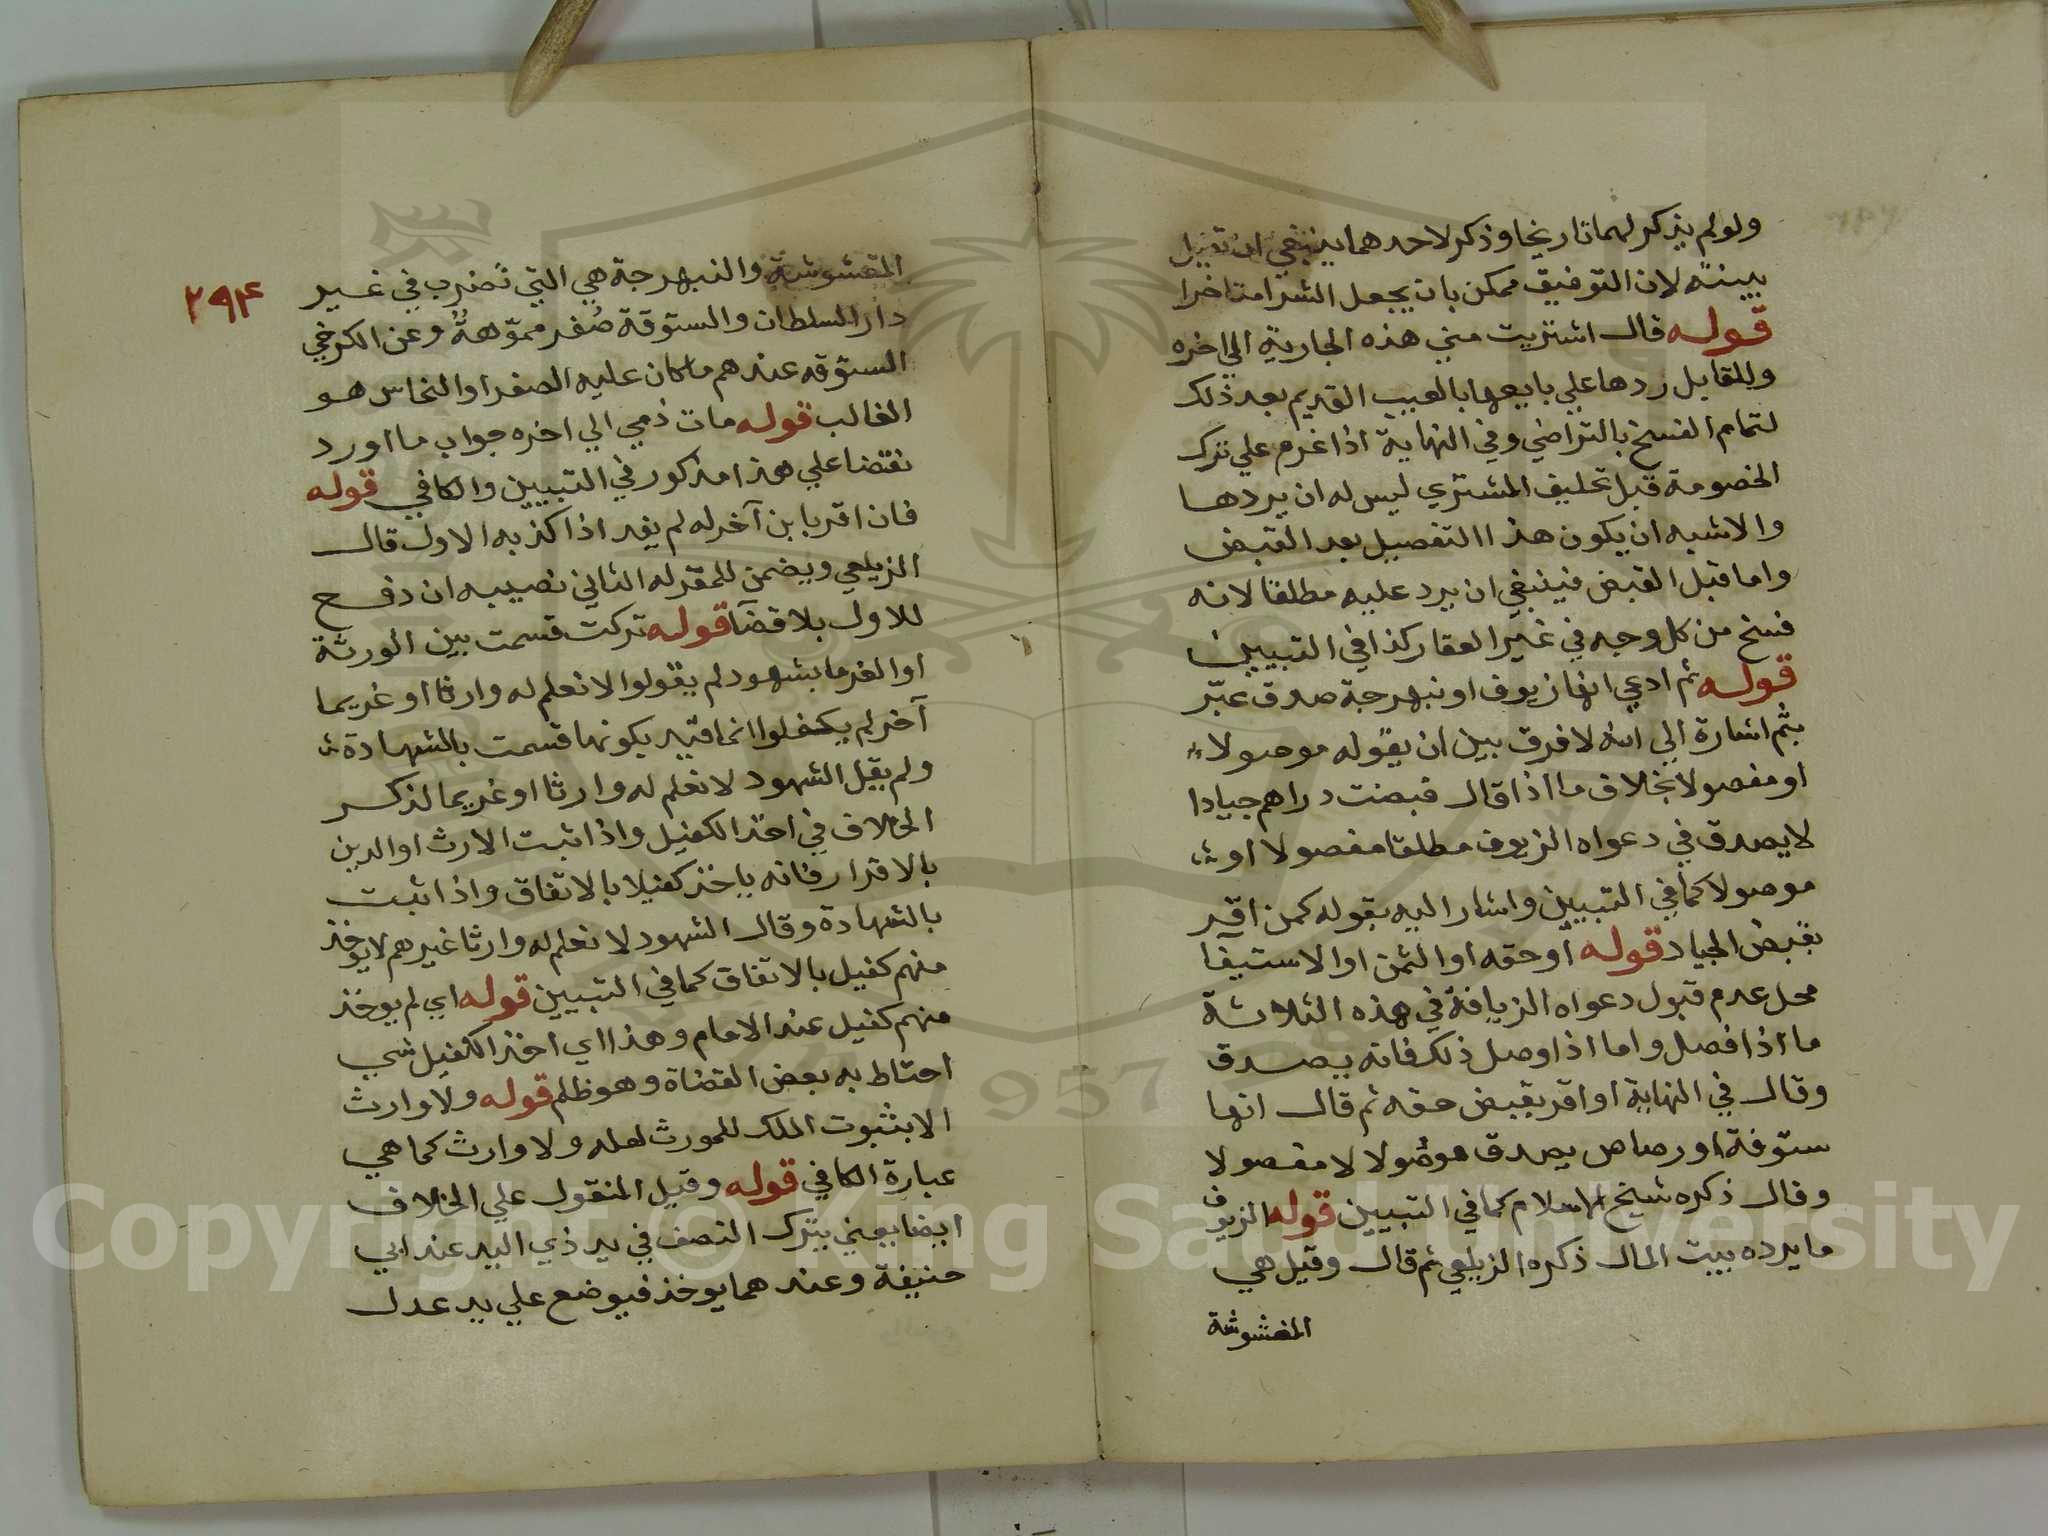 ولو لم يذكر لهما تاريخا وذكر لاحدهما ينبغي ان تقبل
بينته لان التوفيق ممكن بان يجعل الشرا متاخرا
قوله قال اشتريت مني هذه الجارية الي اخره
وللمقابل ردها علي بايعها بالعيب القديم بعد ذلك
لتمام الفسخ بالتراضي وفي النهاية اذا عزم علي ترك
الخصومة قبل تحليف المشتري ليس له ان يردها
والاشبه ان يكون هذا التفصيل بعد القبض
واما قبل القبض فينبغي ان يرد عليه مطلقا لانه
فسخ من كل وجه في غير العقار كذا في التبيين
قوله ثم ادعي انها زيوف او نبهرجة صدق عبّر
بثم اشارة الي انه لا فرق بين ان يقوله موصولا
او مفصولا بخلاف ما اذا قال قبضت دراهم جيادا
لا يصدق في دعواه الزيوف مطلقا مفصولا او
موصولا كما في التبيين واشار اليه بقوله كمن اقر
بقبض الجياد قوله او حقه او الثمن او الاستيفآ
محل عدم قبول دعواه الزيافة في هذه الثلاثة
ما اذا فصل واما اذا وصل ذلك فانه يصدق
وقال في النهاية او اقر بقبض حقه ثم قال انها
ستوقة او رصاص يصدق موصولا لا مفصولا
وقال ذكره شيخ الاسلام كما في التبيين قوله الزيوف
ما يرده بيت المال ذكره الزيلعي ثم قال وقيل هي
المغشوشة
٢٩٤
المغشوشة والنبهرجة هي التي تضرب في غير
دار السلطان والستوقة صُفر مموّهةٌ وعن الكرخي
الستوقه عندهم ما كان عليه الصفر او النحاس هو
الغالب قوله مات ذمي الي اخره جواب ما اورد
نقضا علي هذا مذكور في التبيين والكافي قوله
فان اقر بابن آخر له لم يفد اذا كذبه الاول قال
الزيلعي ويضمن للمقر له الثاني نصيبه ان دفع
للاول بلا قضآ قوله تركت قسمت بين الورثة
او الغرما بشهود لم يقولوا لا نعلم له وارثا او غريما
آخر لم يكفلوا انما قيد بكونها قسمت بالشهادة
ولم يقل الشهود لا نعلم له وارثا او غريما لذكر
الخلاف في اخذ الكفيل واذا ثبت الارث او الدين
بالاقرار فانه ياخذ كفيلا بالاتفاق واذا ثبت
بالشهادة وقال الشهود لا نعلم له وارثا غيرهم لا يوخذ
منهم كفيل بالاتفاق كما في التبيين قوله اي لم يوخذ
منهم كفيل عند الامام وهذا اي اخذ الكفيل شي
احتاط به بعض القضاة وهو ظلم قوله ولا وارث
الا بثبوت الملك للمورث لعله ولا وارث كما هي
عبارة الكافي قوله وقيل المنقول علي الخلاف
ايضا يعني يترك النصف في يد ذي اليد عند ابي
حنيفة وعندهما يوخذ فيوضع علي يد عدل
Copyright © King Saud University
1957